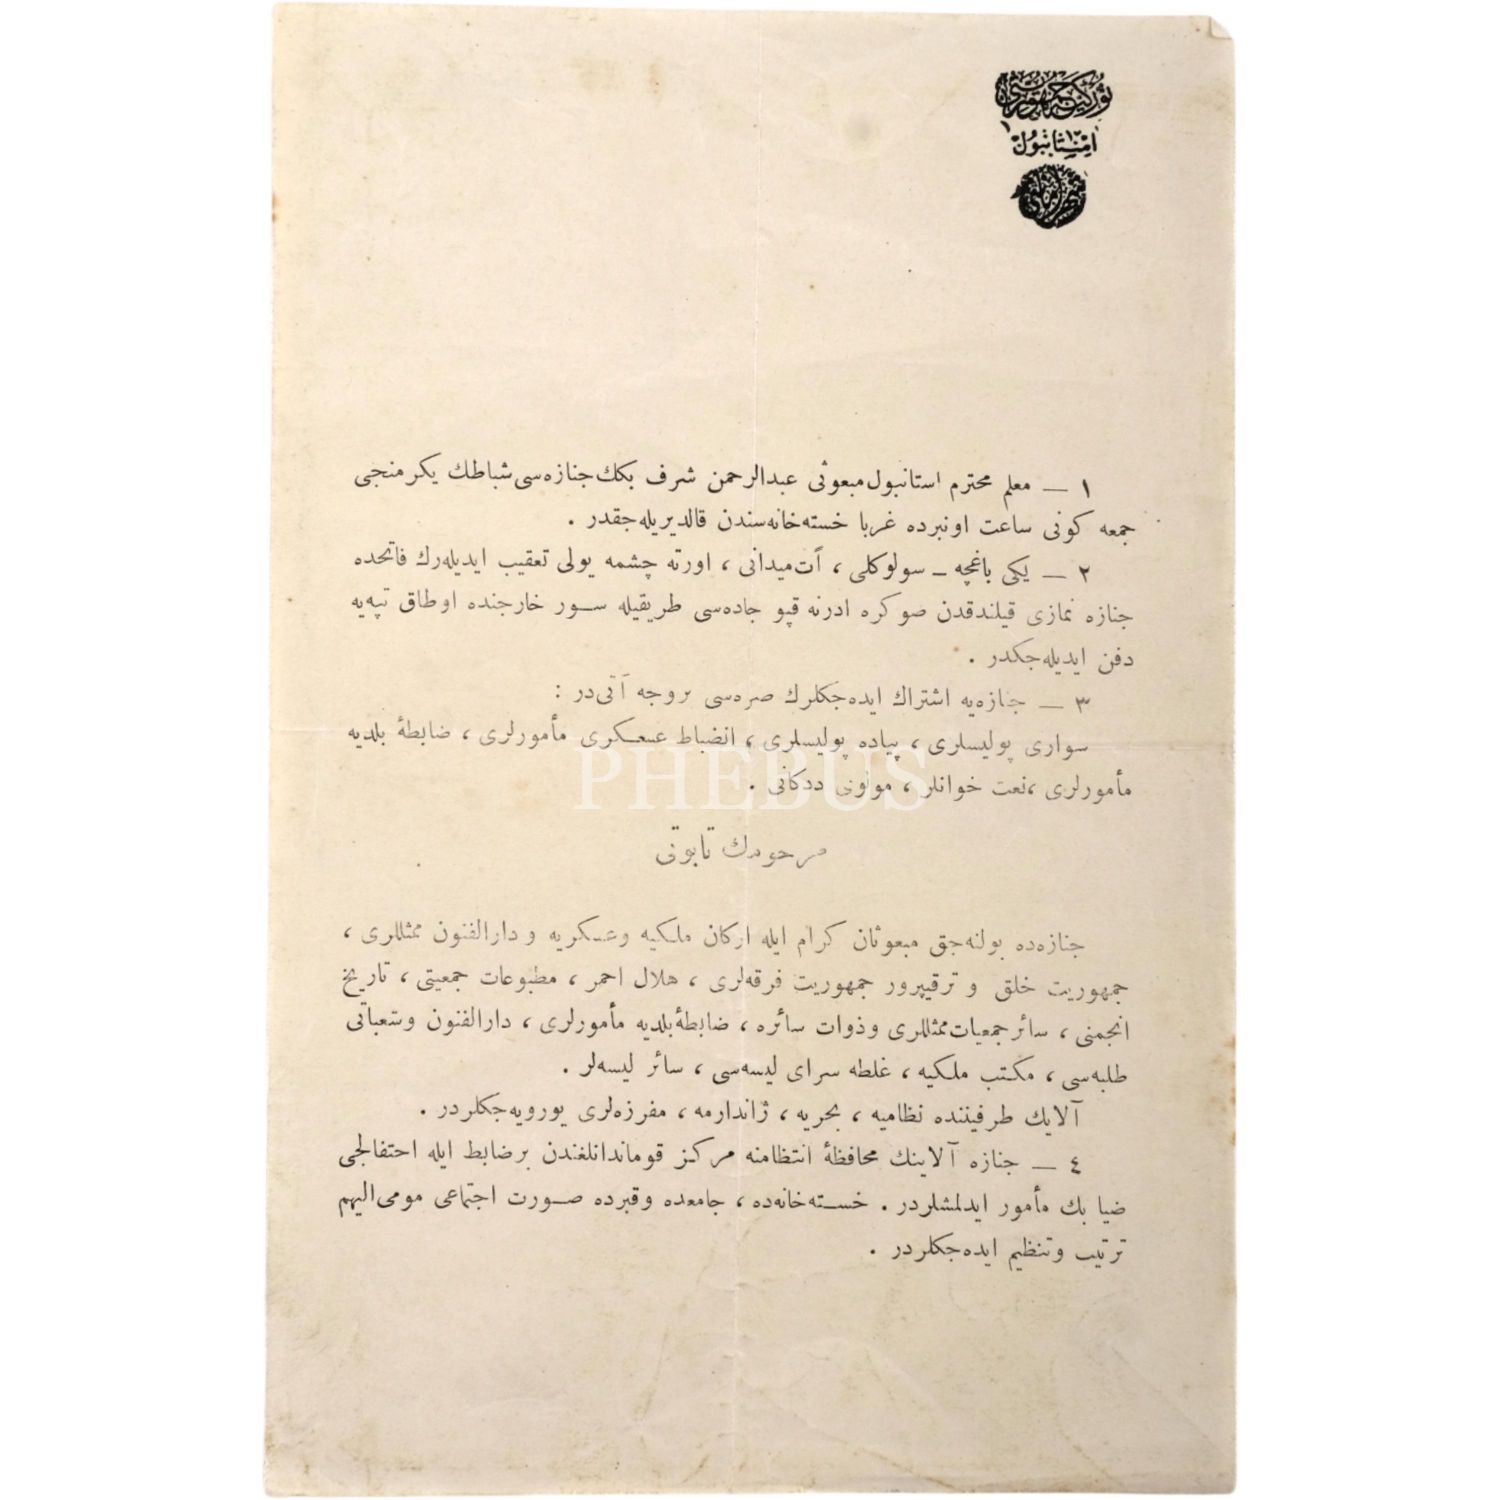 توركيه جمهوريتى
استانبول
شهر امانتى
١ — معلم محترم استانبول مبعوثى عبدالرحمن شرف بكك جنازه‌سى شباطك يكرمنجى
جمعه كونى ساعت اونبرده غربا خسته‌خانه‌سندن قالديريله‌جقدر .
٢ — يكى باغچه – سولوكلى ، آت ميدانى ، اورته چشمه يولى تعقيب ايديله‌رك فاتحده
جنازه نمازى قيلندقدن صوكره ادرنه قپو جاده‌سى طريقيله سور خارجنده اوطاق تپه‌يه
دفن ايديله‌جكدر .
٣ — جنازه‌يه اشتراك ايده‌جكلرك صره‌سى بروجه آتى‌در :
سوارى پوليسلرى ، پياده پوليسلرى ، انضباط عسكرى مأمورلرى ، ضابطۀ بلديه
مأمورلرى ، نعت خوانلر ، مولوى ددكانى .
PHEBUS
مرحومك تابوتى
جنازه‌ده بولنه‌جق مبعوثان كرام ايله اركان ملكيه وعسكريه و دارالفنون ممثللرى ،
جمهوريت خلق و ترقيپرور جمهوريت فرقه‌لرى ، هلال احمر ، مطبوعات جمعيتى ، تاريخ
انجمنى ، سائر جمعيات ممثللرى وذوات سائره ، ضابطۀ بلديه مأمورلرى ، دارالفنون وشعباتى
طلبه‌سى ، مكتب ملكيه ، غلطه سراى ليسه‌سى ، سائر ليسه‌لر .
آلايك طرفيننده نظاميه ، بحريه ، ژاندارمه ، مفرزه‌لرى يورويه‌جكلردر .
٤ — جنازه آلاينك محافظۀ انتظامنه مركز قوماندانلغندن برضابط ايله احتفالجى
ضيا بك مأمور ايدلمشلردر . خسته‌خانه‌ده ، جامعده وقبرده صورت اجتماعى مومى اليهم
ترتيب وتنظيم ايده‌جكلردر .